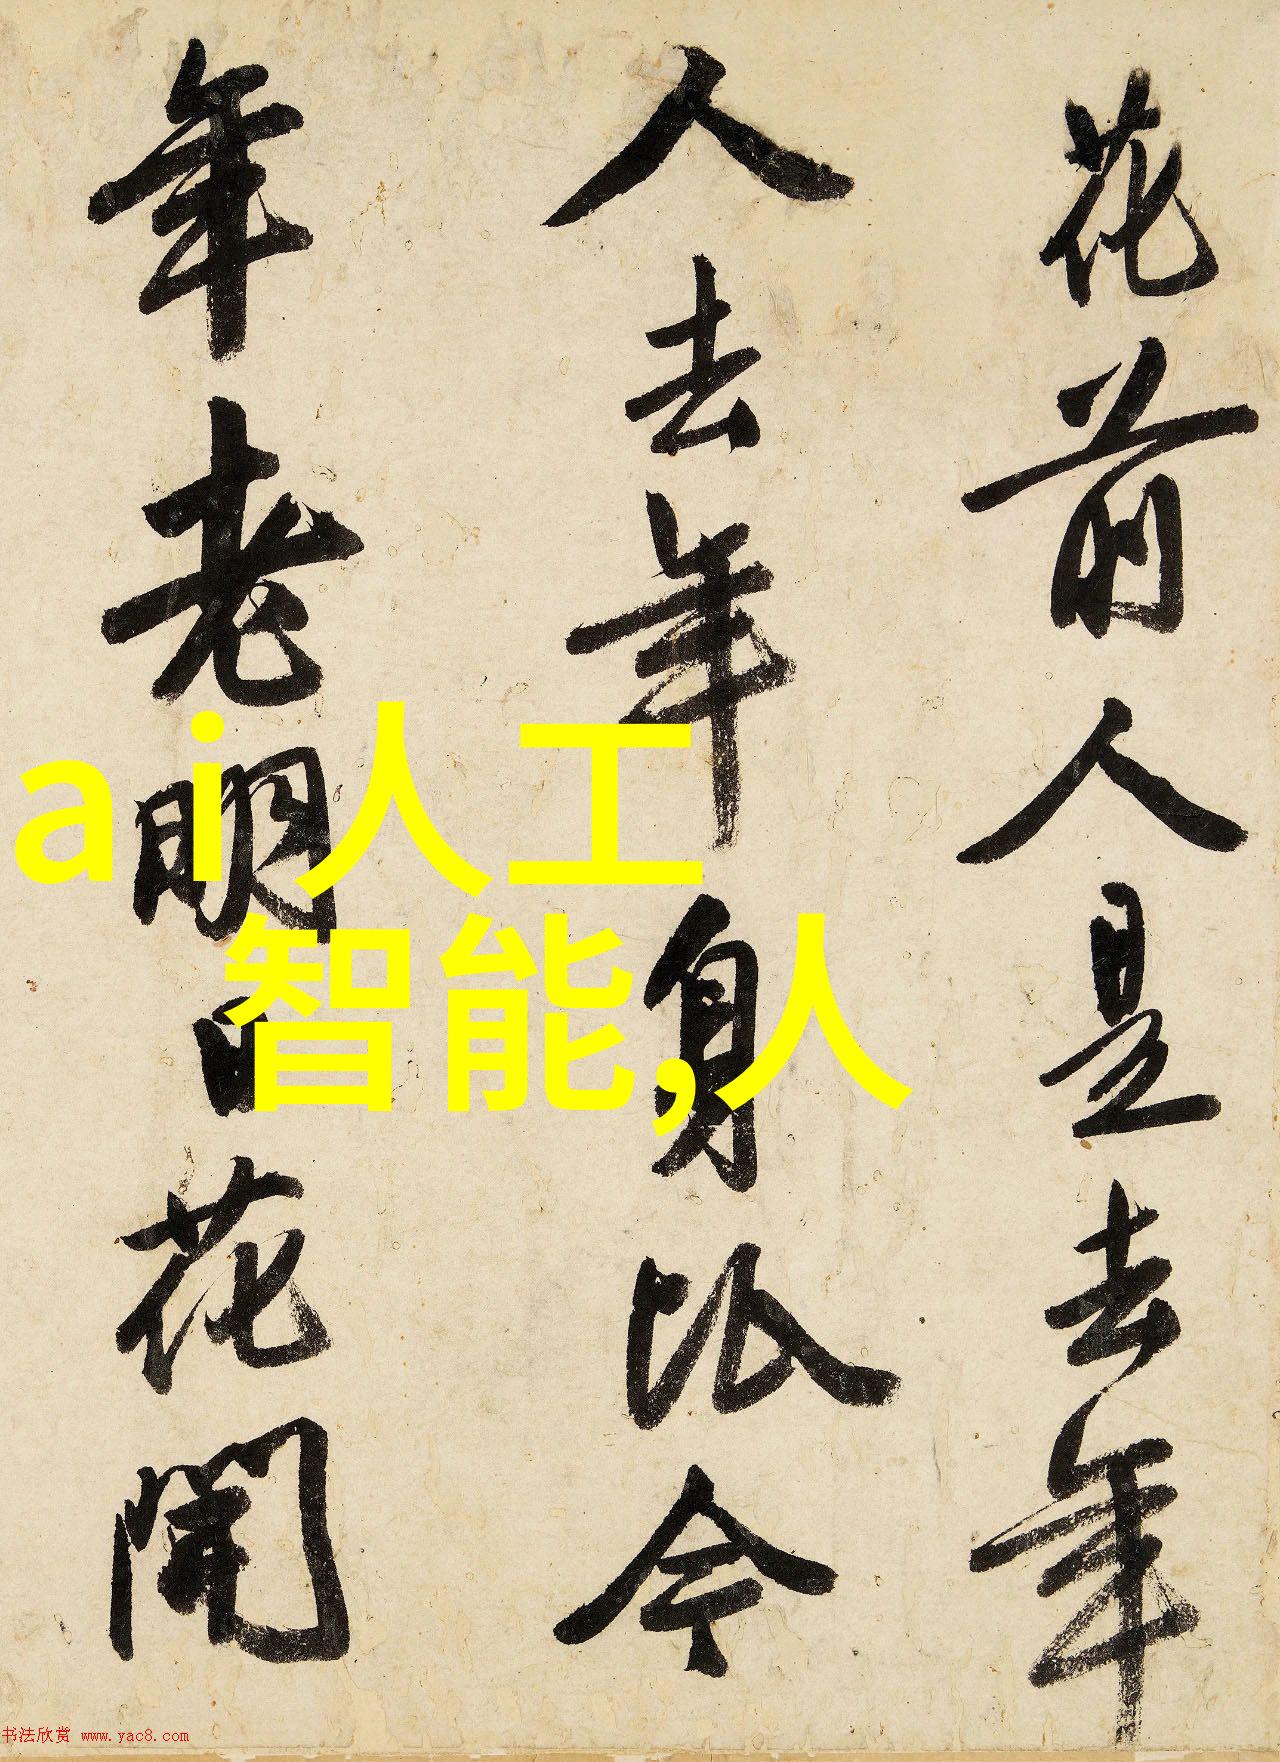 花前人是去年
人去年身比今
年老明日花開
ai人工
智能,人
书法欣赏 www.yac8.com